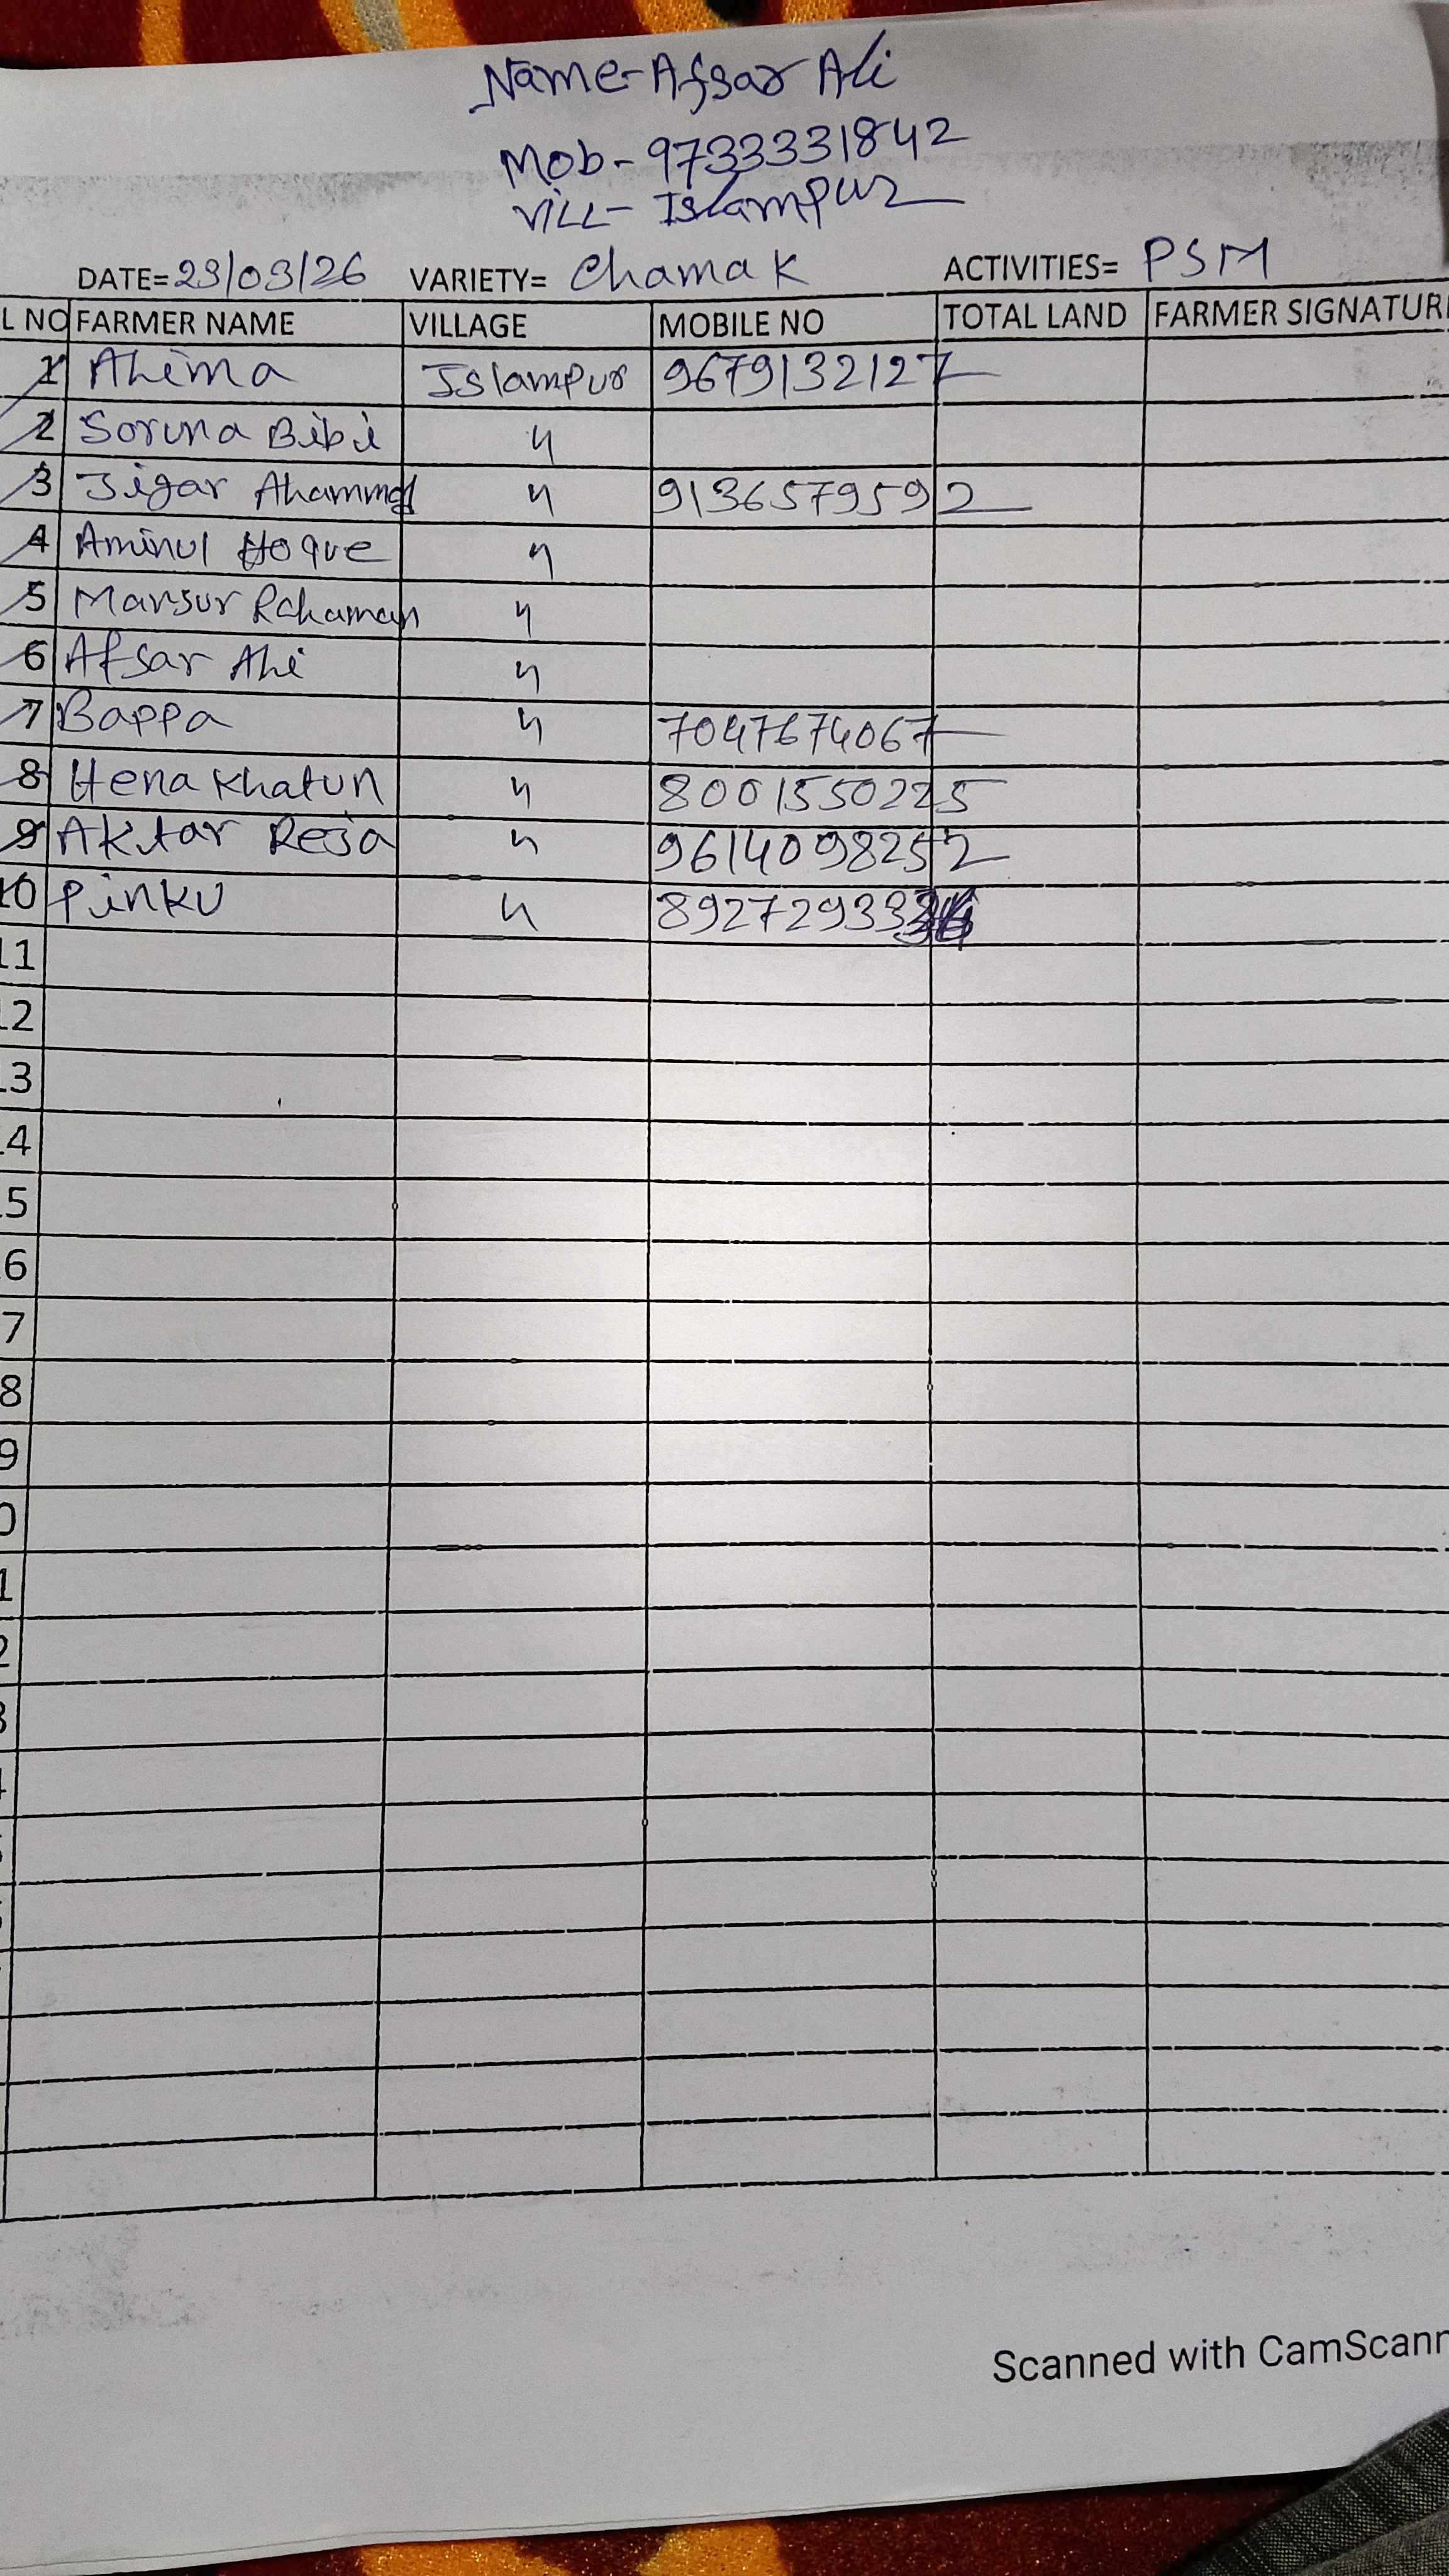 Name- Afsar Ali
Mob- 9733331842
Vill- Islampur
DATE= 29/03/26 VARIETY= Chamak ACTIVITIES= PSM
L NO FARMER NAME VILLAGE MOBILE NO TOTAL LAND FARMER SIGNATURE
1 Alima Islampur 9679132127
2 Soruna Bibi 〃
3 Jigar Ahammed 〃 9136579592
4 Aminul Hoque 〃
5 Mansur Rahaman 〃
6 Afsar Ali 〃
7 Bappa 〃 7047674067
8 Hena Khatun 〃 8001550225
9 Aktar Reja 〃 9614098252
10 Pinku 〃
11
12
13
14
15
16
17
18
19
0
1
2
3
4
Scanned with CamScann